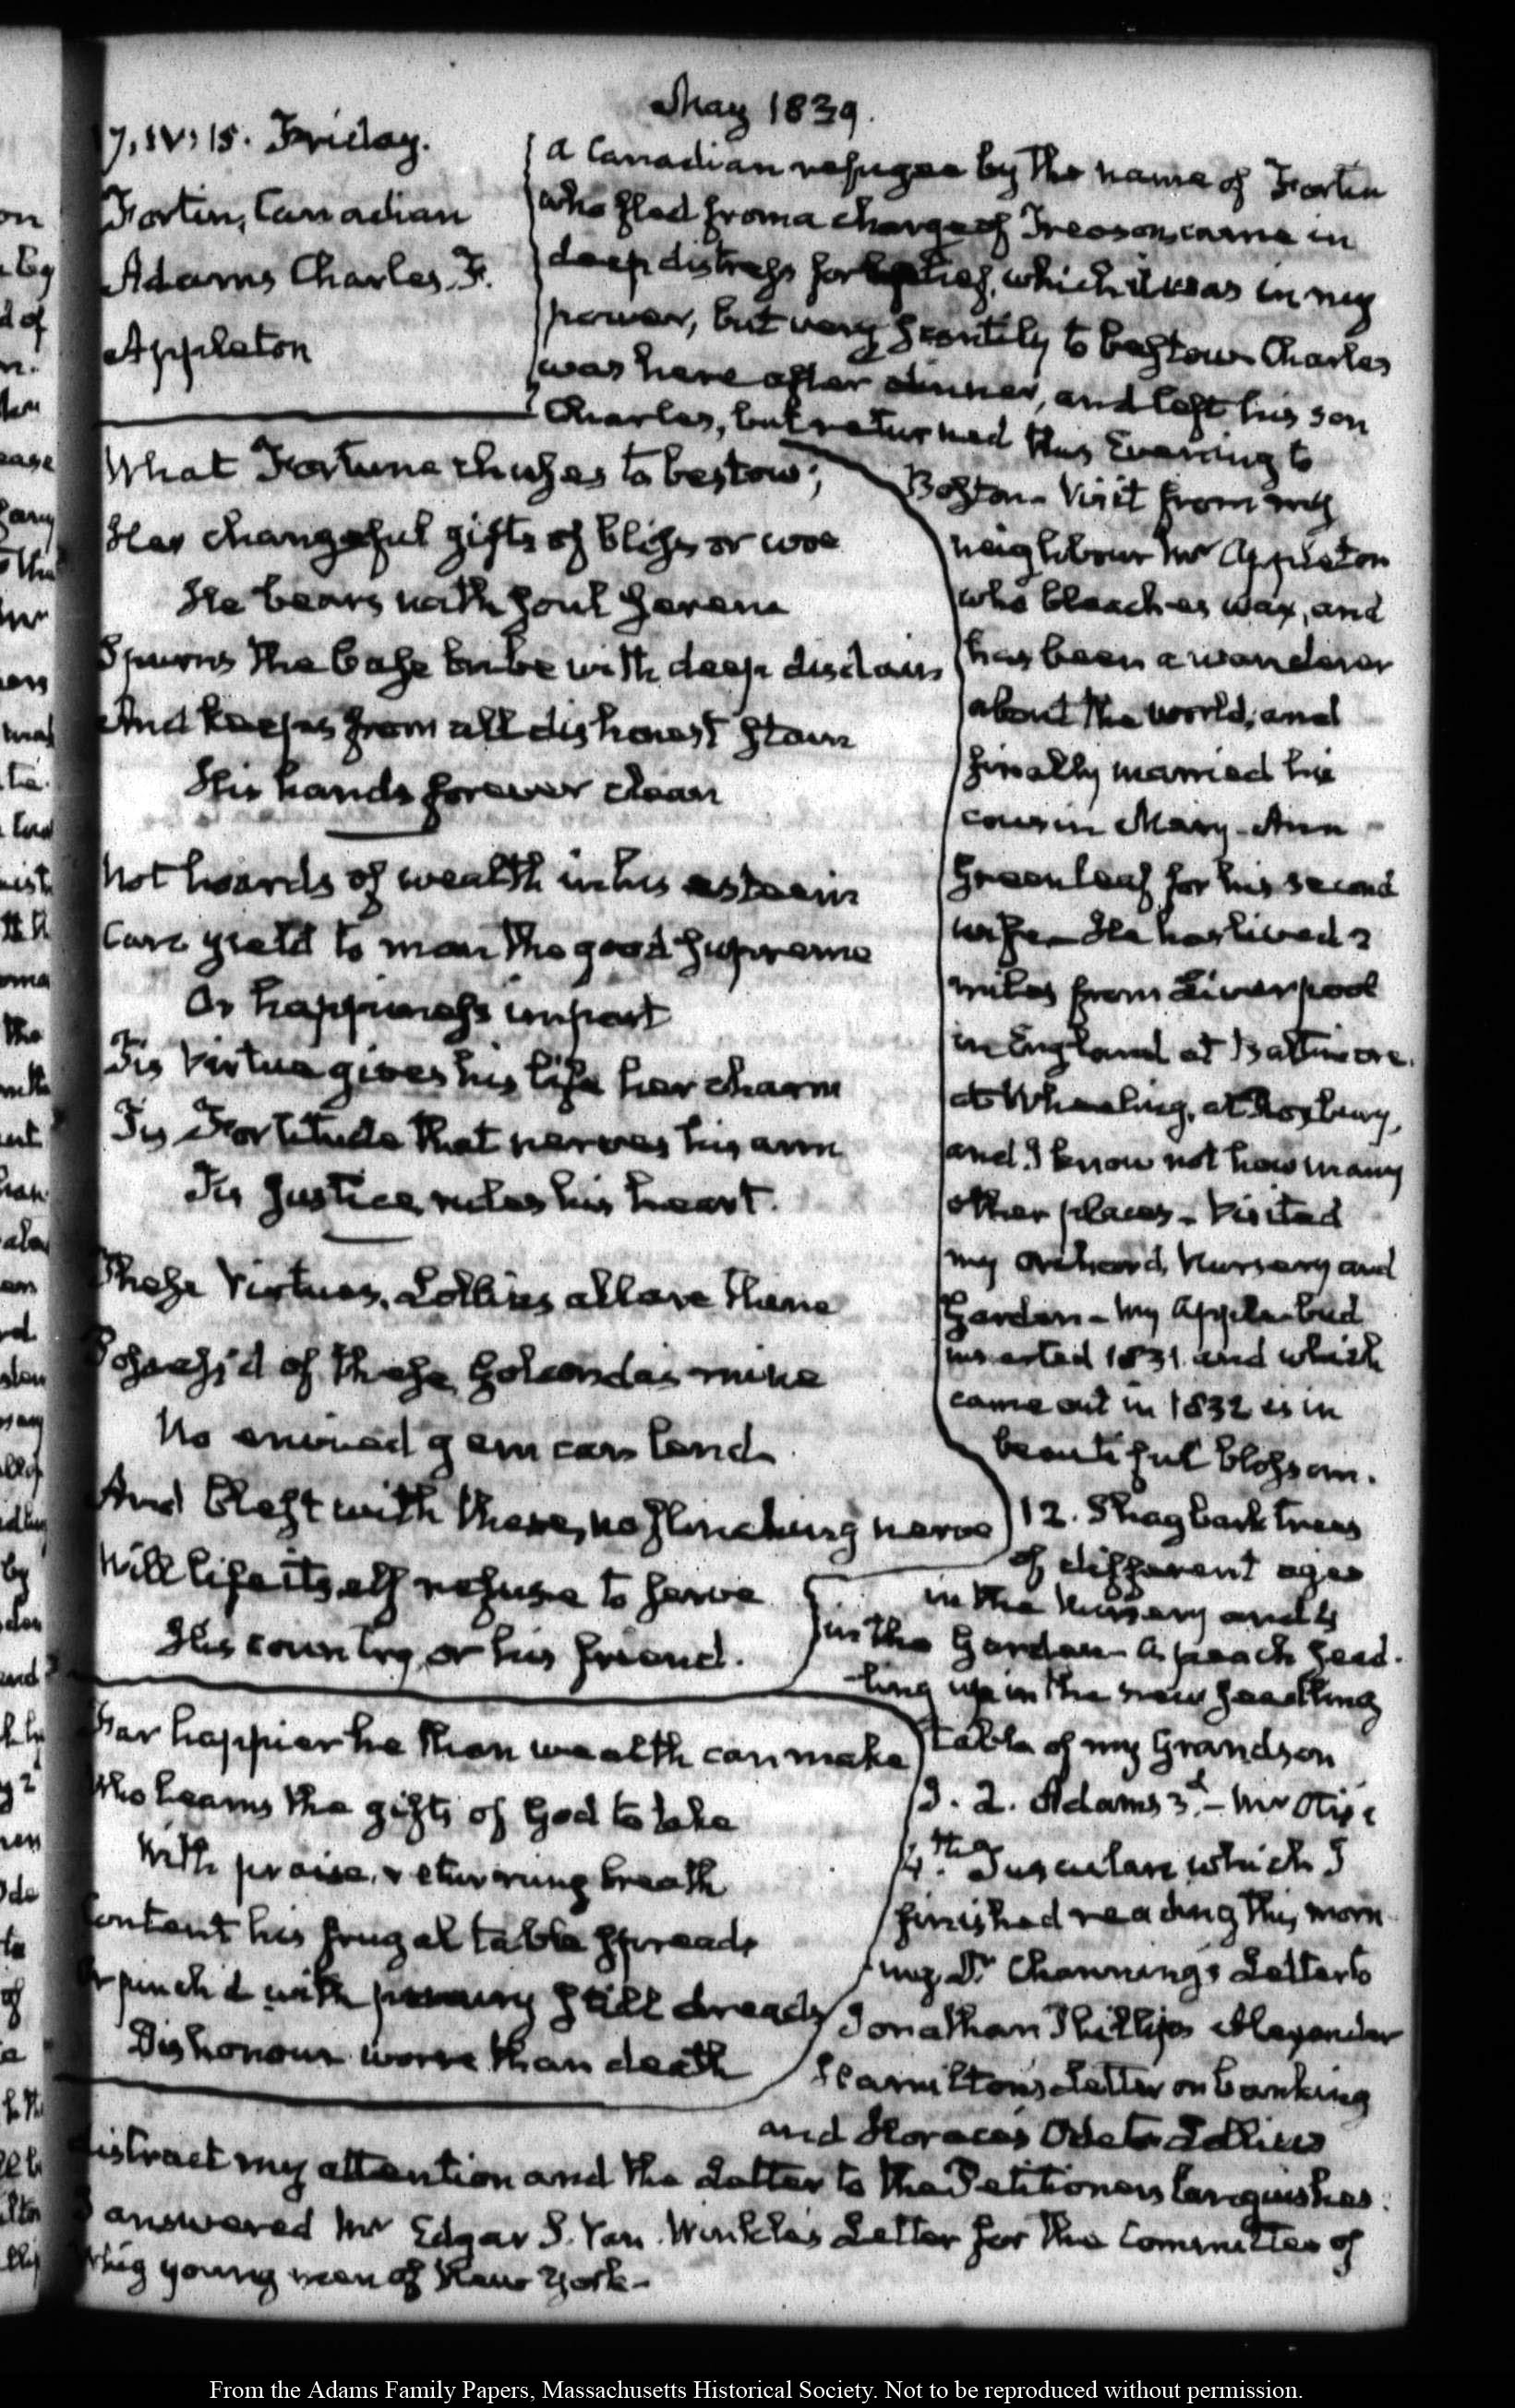 May 1839.
17. IV: 15. Friday.
Fortin, Canadian
Adams Charles. F.
Appleton
A Canadian refugee by the name of Fortin
who fled from a charge of Treason, came in
deep distress for relief, which it was in my
power, but very scantily to bestow. Charles
was here after dinner, and left his son
Charles, but returned this Evening to
Boston. Visit from my
neighbour Mr Appleton
who bleaches wax, and
has been a wanderer
about the world, and
finally married his
cousin Mary-Ann
Greenleaf for his second
wife. He has lived 2
miles from Liverpool
in England at Baltimore.
at Wheeling, at Roxbury,
and I know not how many
other places. Visited
my orchard, Nursery and
Garden. My Apple-bud
inserted 1831 and which
came out in 1832 is in
beautiful blossom.
12. Shagbark trees
of different ages
in the Nursery and 4
in the Garden. A peach seed-
ling up in the new seedling
table of my Grandson
J. Q. Adams 3d. Mr Otis's
4th. Tusculan, which I
finished reading this morn-
ing Dr Channing's Letter to
Jonathan Phillips Alexander
Hamilton's Letter on banking
and Horace's Ode to Lollius
distract my attention and the Letter to the Petitioners languishes.
I answered Mr Edgar S. Van. Winkle's Letter for the Committee of
Whig young men of New York.
What Fortune chuses to bestow;
Her changeful gifts of bliss or woe
He bears with soul serene
Spurns the base bribe with deep disdain
And keeps from all dishonest stain
His hands forever clean
Not hoards of wealth in his esteem
Can yield to man the good supreme
Or happiness impart
Tis Virtue gives his life her charm
Tis Fortitude that nerves his arm
Tis Justice rules his heart.
These Virtues, Lollius all are thine
Possess'd of these Golconda's mine
No envied gem can lend
And blest with these, no flinching nerve
Will life itself refuse to serve
His country, or his friend.
Far happier he than wealth can make
Who learns the gifts of God to take
With praise, returning breath
Content his frugal table spreads
Or pinch'd with penury still dreads
Dishonour worse than death
From the Adams Family Papers, Massachusetts Historical Society. Not to be reproduced without permission.